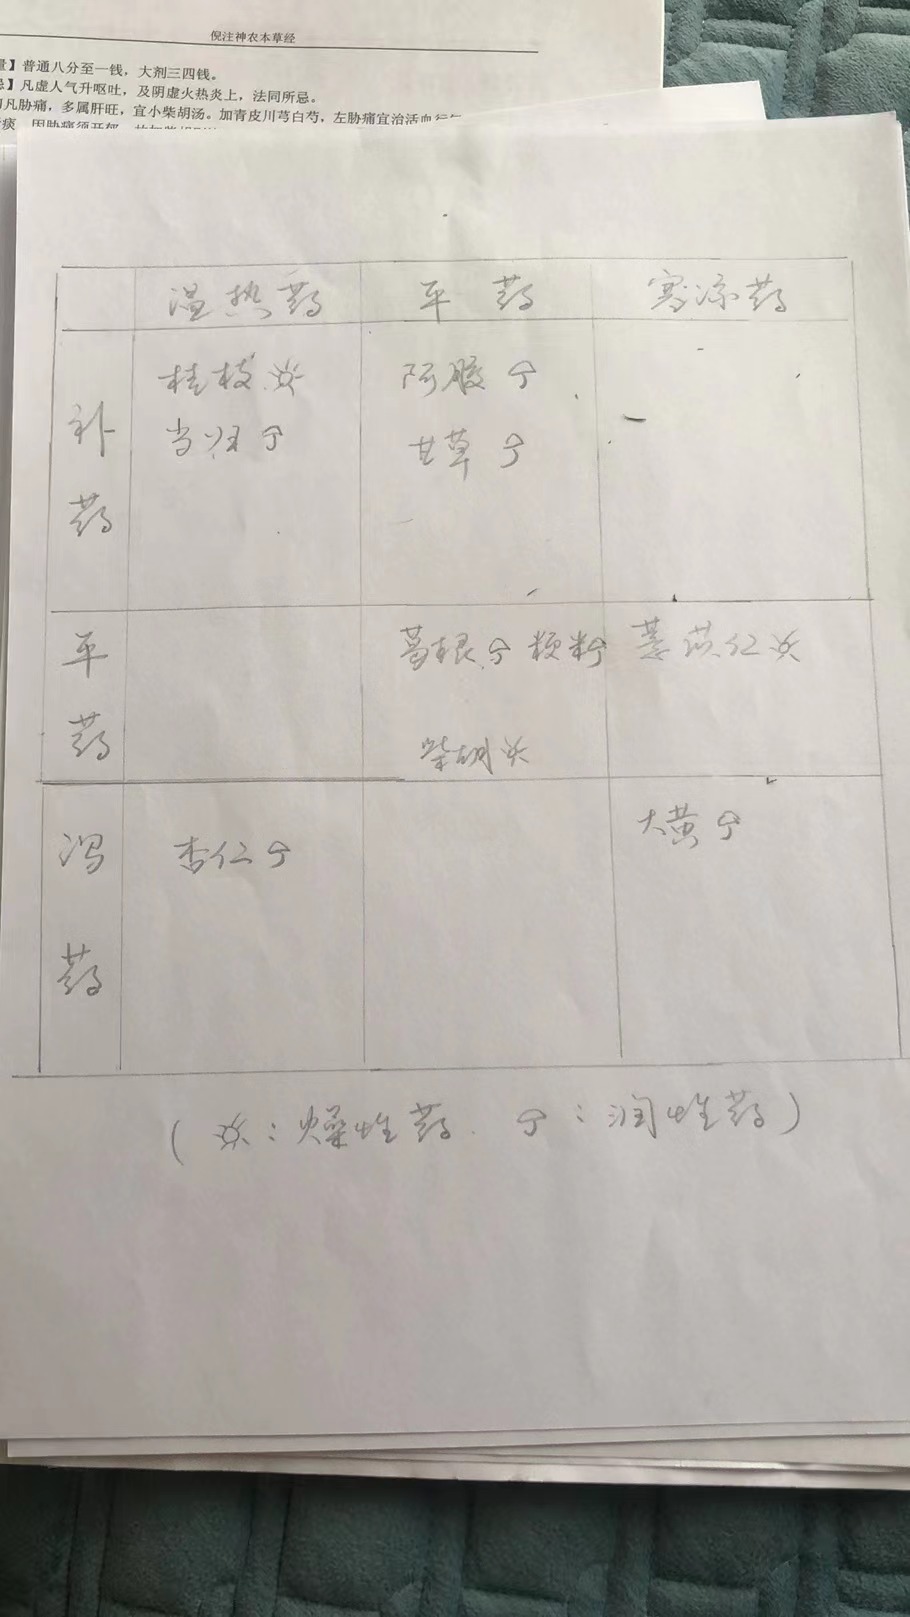 倪注神农本草经
量】普通八分至一钱，大剂三四钱。
忌】凡虚人气升呕吐，及阴虚火热炎上，法同所忌。
凡胁痛，多属肝旺，宜小柴胡汤。加青皮川芎白芍，左胁痛宜治活血行气
痰，因胁痛须开郁
温热药 平药 寒凉药
补药
桂枝 阿胶
当归 甘草
平药
葛根 颗粒 薏苡仁
柴胡
泻药
杏仁 大黄
（ ：燥性药 ：润性药）